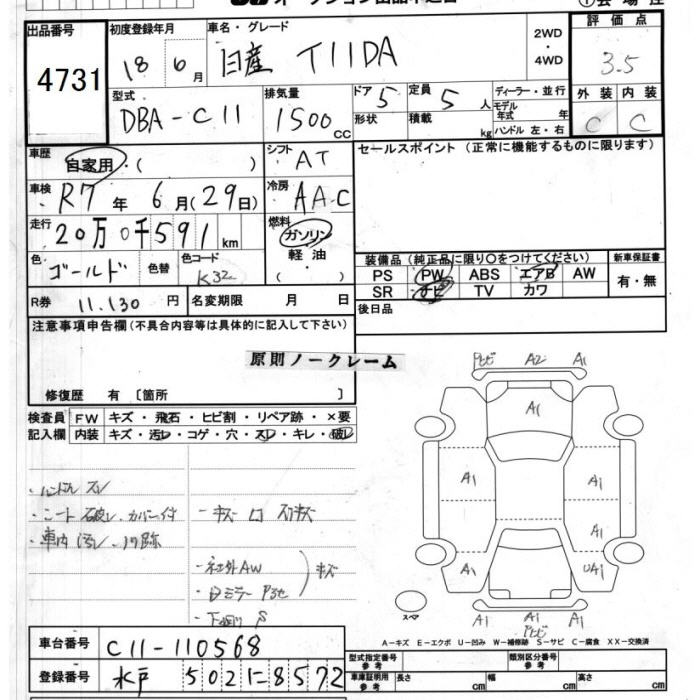 出品番号
4731
初度登録年月
18 6月
車名・グレード
日産 TIIDA
2WD
・
4WD
評価点
3.5
型式
DBA-C11
排気量
1500 CC
ドア
5
形状
定員
5 人
積載
kg
ディーラー・並行
モデル年式 年
ハンドル 左・右
外装 内装
C C
車歴
自家用・( )
シフト
AT
セールスポイント (正常に機能するものに限ります)
車検
R7年 6月(29日)
冷房
AAC
走行
20万0千591km
燃料
ガソリン
軽油
( )
色
ゴールド
色替
色コード
K32
装備品 (純正品に限り〇をつけてください)
PS PW ABS エアB AW
SR ナビ TV カワ
新車保証書
有・無
R券 11.130円
名変期限 月 日
後日品
注意事項申告欄(不具合内容等は具体的に記入して下さい)
原則ノークレーム
修復歴 有 〔箇所 〕
検査員記入欄
FW キズ・飛石・ヒビ割・リペア跡・×要
内装 キズ・汚レ・コゲ・穴・スレ・キレ・破レ
・ハンドル スレ
・シート破レ、カバー付
・車内汚レ、ノリ跡
・社外AW
キズ
A2 A1
A1
A1 A1
A1
A1 UA1
スペア
A1 A1 A1
A-キズ E-エクボ U-凹み W-補修跡 S-サビ C-腐食 XX-交換済
車台番号 C11-110568
登録番号 水戸 502に8572
型式指定番号 参考
類別区分番号 参考
車庫証明用 参考
長さ cm
幅 cm
高さ cm